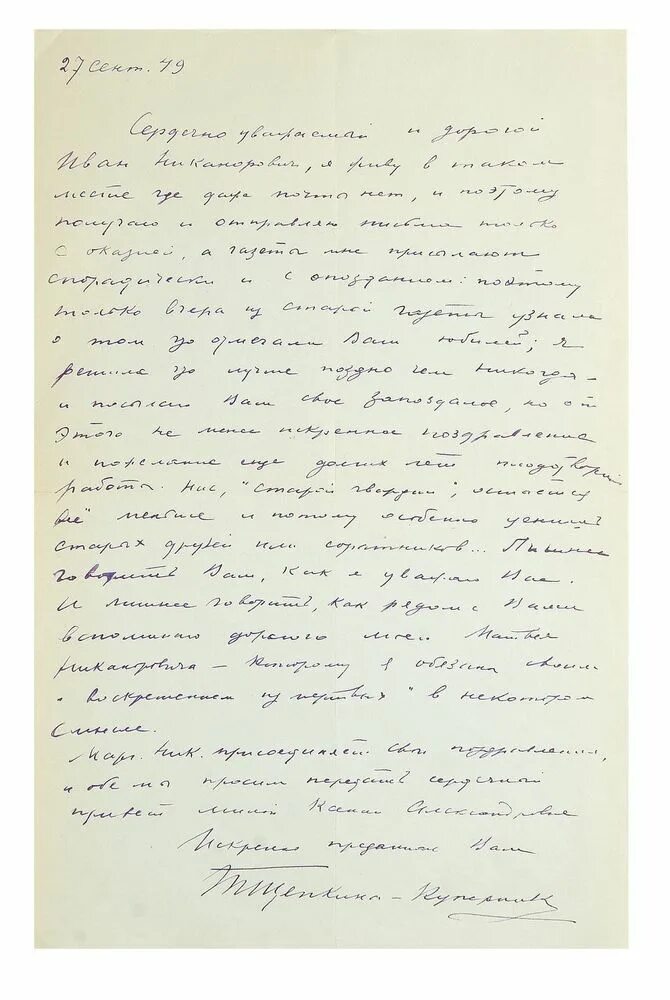 27 сент. 49
Сердечно уважаемый и дорогой
Иван Никанорович, я живу в таком
месте где даже почты нет, и поэтому
получаю и отправляю письма только
с оказией, а газеты мне присылают
спорадически и с опозданием: поэтому
только вчера из старой газеты узнала
о том что отмечали Ваш юбилей; я
решила что лучше поздно чем никогда –
и посылаю Вам свое запоздалое, но от
этого не менее искреннее поздравление
и пожелание еще долгих лет плодотворной
работы. Нас, "старой гвардии", остается
все меньше и потому особенно ценишь
старых друзей или соратников... Лишнее
говорить Вам, как я уважаю Вас.
И лишнее говорить, как рядом с Вами
вспоминаю дорогого моего Матвея
Никаноровича – которому я обязана своим
"воскрешением из мертвых" в некотором
смысле.
Марг. Ник. присоединяет свои поздравления,
и обе мы просим передать сердечный
привет милой Ксении Александровне
Искренно преданная Вам
ТЩепкина-Куперник